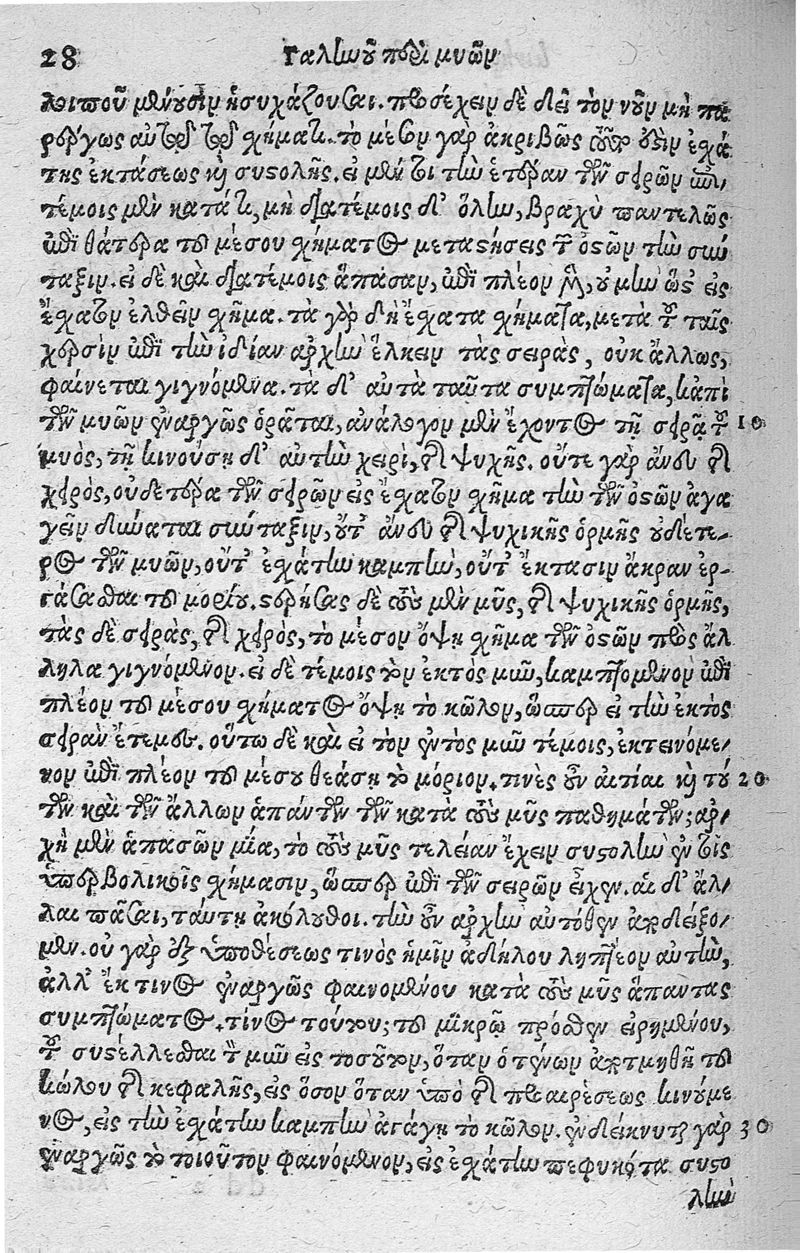 28 Γαληνοῦ περὶ μυῶν
λοιποῦ μένουσιν ἡσυχάζουσαι. προσέχειν δὲ δεῖ τὸν νοῦν μὴ πα
ρέργως αὐτοῦ τοῦ σχήματι. τὸ μέσον γὰρ ἀκριβῶς οὗτόν ἐστιν ἐσχά
της ἐκτάσεως καὶ συστολῆς. εἰ μέν τοι τὴν ἑτέραν τῶν σειρῶν ἐπι
τέμοις μὲν κατά τι, μὴ διατέμοις δ' ὅλην, βραχὺ παντελῶς
ἐπὶ θάτερα τοῦ μέσου σχήματος μεταστήσεις τῶν ὀστῶν τὴν σύν
ταξιν. εἰ δὲ καὶ διατέμοις ἅπασαν, ἐπὶ πλέον μέν, οὐ μὴν ὥστ' εἰς
ἔσχατον ἐλθεῖν σχῆμα. τὰ γὰρ δὴ ἔσχατα σχήματα, μετὰ τοῦ ταῖς
χερσὶν ἐπὶ τὴν ἰδίαν ἀρχὴν ἕλκειν τὰς σειρὰς, οὐκ ἄλλως,
φαίνεται γιγνόμενα. τὰ δ' αὐτὰ ταῦτα συμπτώματα, κἀπὶ
τῶν μυῶν ἐναργῶς ὁρᾶται, ἀνάλογον μὲν ἔχοντος τῇ σειρᾷ τοῦ 10
μυὸς, τῇ κινούσῃ δ' αὐτὴν χειρὶ, τῆς ψυχῆς. οὔτε γὰρ ἄνευ τῆς
χειρὸς, οὐδετέρα τῶν σειρῶν εἰς ἔσχατον σχῆμα τὴν τῶν ὀστῶν ἀγα
γεῖν δύναται σύνταξιν, οὔτ' ἄνευ τῆς ψυχικῆς ὁρμῆς οὐδέτε-
ρος τῶν μυῶν, οὔτ' ἐσχάτην καμπὴν, οὔτ' ἔκτασιν ἄκραν ἐρ-
γάσασθαι τοῦ μορίου. στερήσας δὲ τοὺς μὲν μῦς, τῆς ψυχικῆς ὁρμῆς,
τὰς δὲ σειρὰς, τῆς χειρὸς, τὸ μέσον ὄψῃ σχῆμα τῶν ὀστῶν πρὸς ἄλ
ληλα γιγνόμενον. εἰ δὲ τέμοις τὸν ἐκτὸς μῦν, καμπτόμενον ἐπὶ
πλέον τοῦ μέσου σχήματος ὄψῃ τὸ κῶλον, ὥσπερ εἰ τὴν ἐκτὸς
σειρὰν ἔτεμες. οὕτω δὲ καὶ εἰ τὸν ἐντὸς μῦν τέμοις, ἐκτεινόμε-
νον ἐπὶ πλέον τοῦ μέσου θεάσῃ τὸ μόριον. τινὲς οὖν αἰτίαι καὶ τού 20
των καὶ τῶν ἄλλων ἁπάντων τῶν κατὰ τοὺς μῦς παθημάτων; ἀρ-
χὴ μὲν ἁπασῶν μία, τὸ τοὺς μῦς τελείαν ἔχειν συστολὴν ἐν τοῖς
ὑπερβολικοῖς σχήμασιν, ὥσπερ ἐπὶ τῶν σειρῶν εἶχεν. αἱ δ' ἄλ-
λαι πᾶσαι, ταύτῃ ἀκόλουθοι. τὴν οὖν ἀρχὴν αὐτόθεν ἀποδείξο-
μεν. οὐ γὰρ ἐξ ὑποθέσεως τινὸς ἡμῖν ἀδήλου ληπτέον αὐτὴν,
ἀλλ' ἔκ τινος ἐναργῶς φαινομένου κατὰ τοὺς μῦς ἅπαντας
συμπτώματος. τίνος τούτου; τοῦ μικρῷ πρόσθεν εἰρημένου,
τοῦ συστέλλεσθαι τὸν μῦν εἰς τοσοῦτον, ὅταν ὁ τένων ἀποτμηθῇ τοῦ
κώλου τῆς κεφαλῆς, εἰς ὅσον ὅταν ὑπὸ τῆς προαιρέσεως κινούμε
νος, εἰς τὴν ἐσχάτην καμπὴν ἀγάγῃ τὸ κῶλον. ἐνδείκνυται γὰρ 30
ἐναργῶς τὸ τοιοῦτον φαινόμενον, εἰς ἐσχάτην πεφυκότα συστο
λὴν